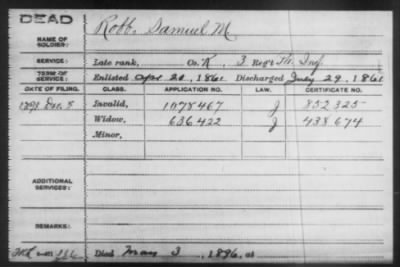 DEAD
NAME OF SOLDIER: Robb, Samuel M
SERVICE: Late rank, Co. K, 3 Reg't Inf.
TERM OF SERVICE: Enlisted Apr 20, 1861 Discharged July 29, 1861
DATE OF FILING. CLASS. APPLICATION NO. LAW. CERTIFICATE NO.
1891 Dec. 8 Invalid, 1078467 J 852325
Widow, 636422 J 438674
Minor,
ADDITIONAL SERVICES:
REMARKS:
Died May 3, 1896, at